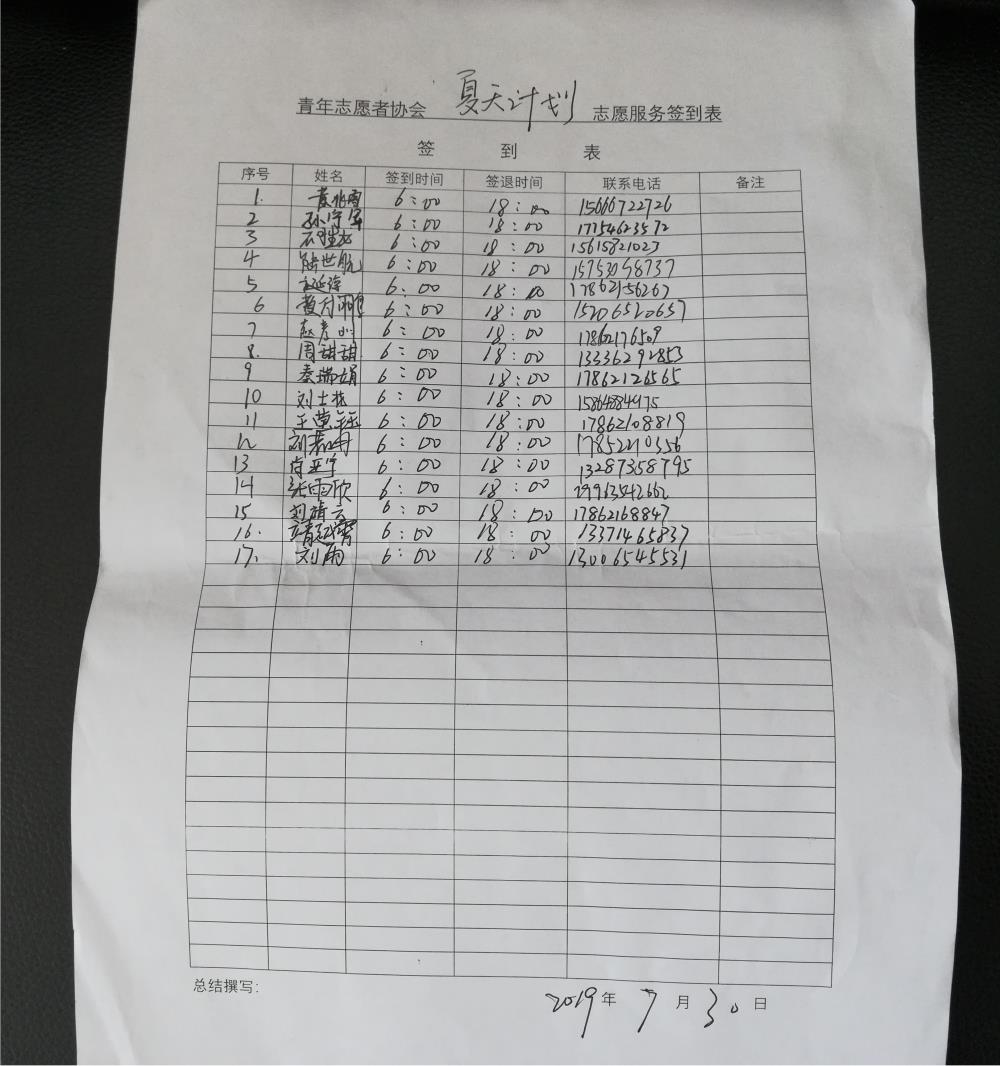 青年志愿者协会 夏天计划 志愿服务签到表
签 到 表
序号 姓名 签到时间 签退时间 联系电话 备注
1. 6:00 18:00 15666722726
2 孙宁军 6:00 18:00 17754623572
3 6:00 18:00 15615821023
4 陆世航 6:00 18:00 15753098737
5 6:00 18:00 17862156267
6 6:00 18:00 15206520657
7 赵彦 6:00 18:00 17862176509
8. 周甜甜 6:00 18:00 13336292853
9 秦瑞娟 6:00 18:00 17862126565
10 刘士 6:00 18:00 15864884975
11 王莹钰 6:00 18:00 17862108819
12 刘君冉 6:00 18:00 17852210356
13 肖亚宁 6:00 18:00 13287358795
14 张雨欣 6:00 18:00 19963542662
15 刘倩云 6:00 18:00 17862168847
16. 6:00 18:00 13371465837
17. 刘雨 6:00 18:00 13006545531
总结撰写:
2019年 7月30日